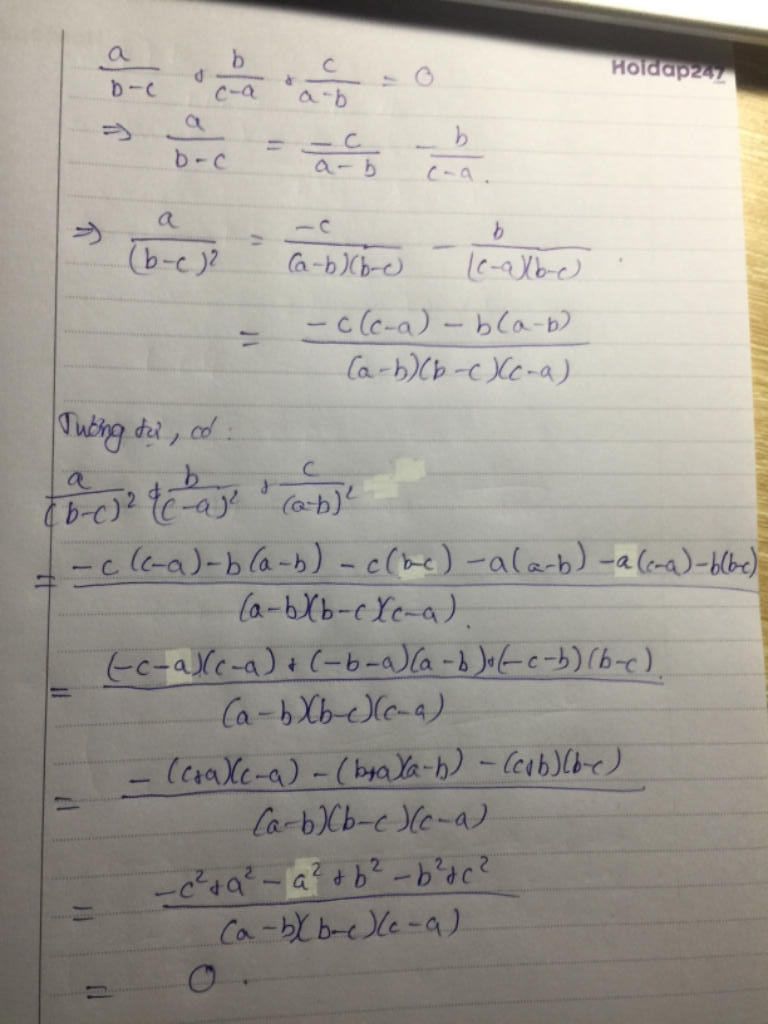 Hoidap247
a/(b-c) + b/(c-a) + c/(a-b) = 0
=> a/(b-c) = -c/(a-b) - b/(c-a).
=> a/(b-c)² = -c/((a-b)(b-c)) - b/((c-a)(b-c)).
= (-c(c-a) - b(a-b))/((a-b)(b-c)(c-a))
Tương tự, có:
a/(b-c)² + b/(c-a)² + c/(a-b)²
= (-c(c-a) - b(a-b) - c(b-c) - a(a-b) - a(c-a) - b(b-c))/((a-b)(b-c)(c-a)).
= ((-c-a)(c-a) + (-b-a)(a-b) + (-c-b)(b-c).)/((a-b)(b-c)(c-a))
= (-(c+a)(c-a) - (b+a)(a-b) - (c+b)(b-c))/((a-b)(b-c)(c-a))
= (-c²+a² - a²+b² - b²+c²)/((a-b)(b-c)(c-a))
= 0.